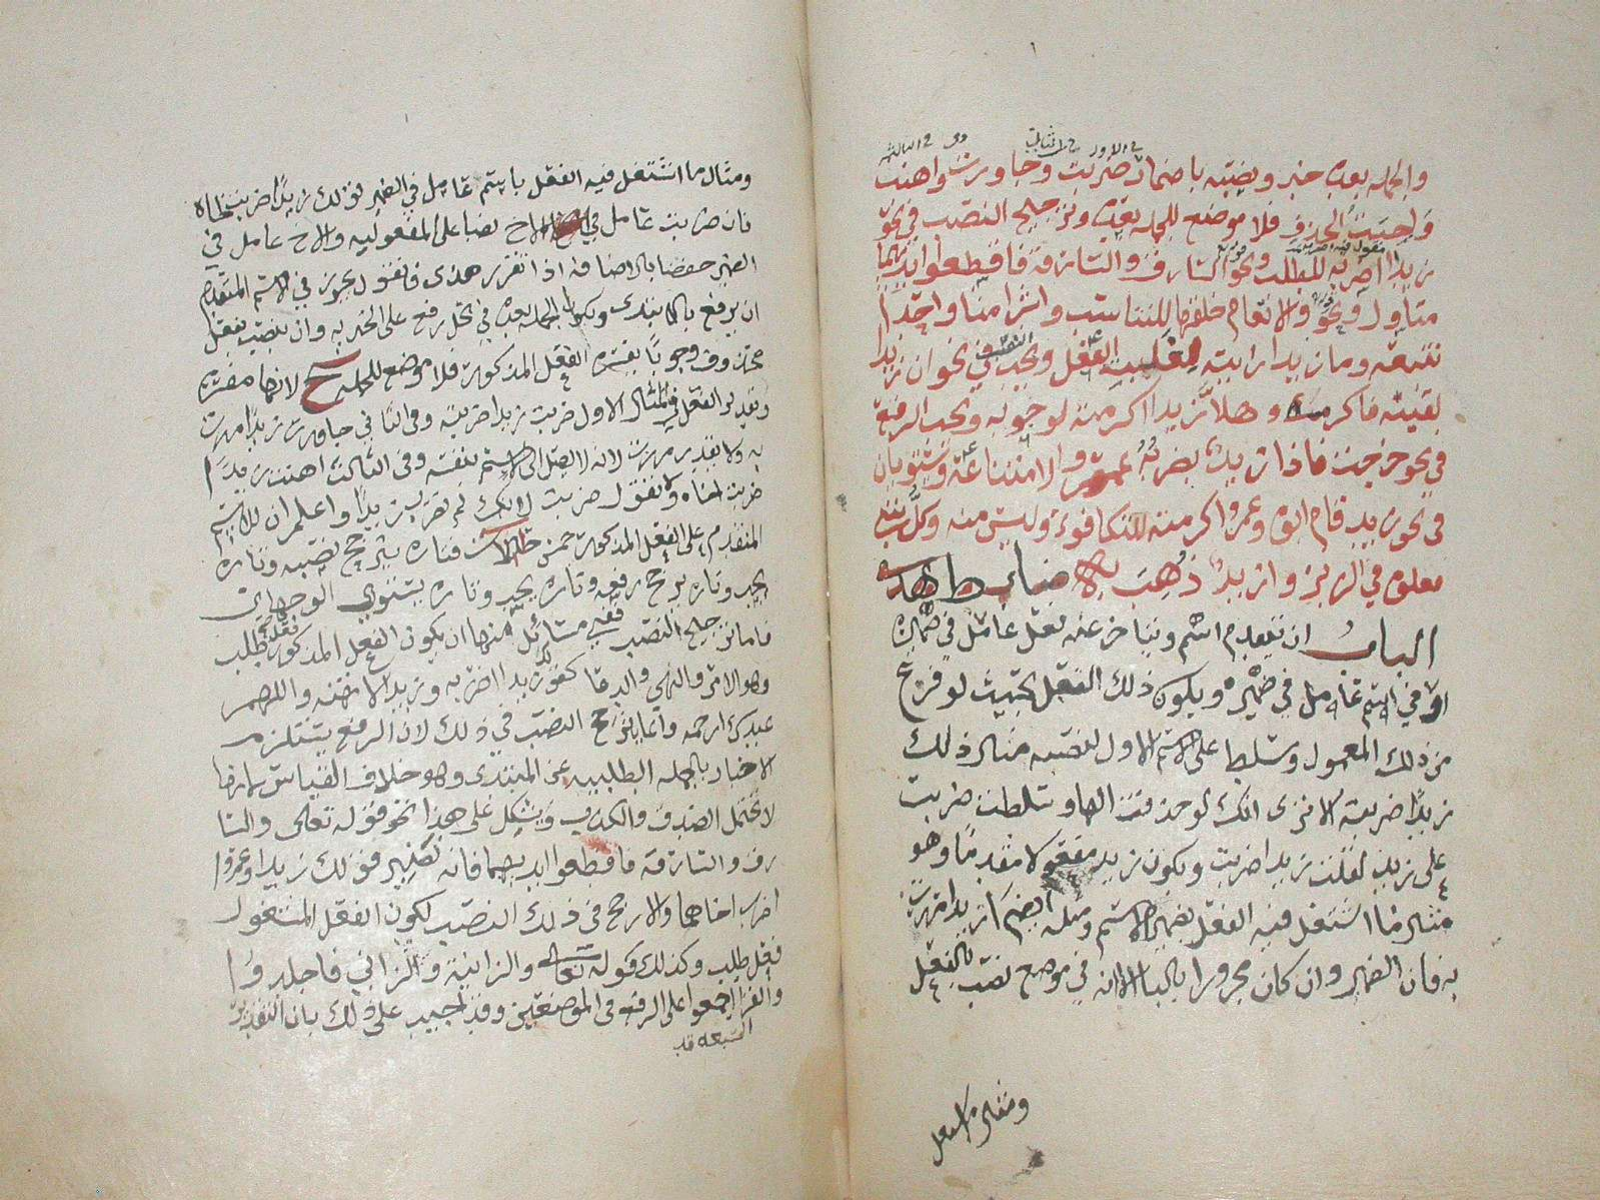 في الاول في الثاني وفي الثالث
والجملة بعده خبر ونصبه باضمار ضربت وجاوزت واهنت
واجبة الحذف فلا موضع للجملة بعده وترجيح النصب في نحو
زيدا اضربه للطلب ونحو السارق والسارقة فاقطعوا ايديهما
متاول ونحو والانعام خلقها للتناسب وابشرا منا واحدا
نتبعه وما زيدا رايته لغلبة الفعل ويجب في نحو ان زيدا
لقيته فاكرمه وهلا زيدا اكرمته لوجوبه ويجب الرفع
في نحو خرجت فاذا زيد يضربه عمرو لامتناعه ويستويان
في نحو زيد قام ابوه وعمرو اكرمته للتكافوء وليس منه وكل شيء
معلوه في الزبر وازيد ذهب به ضابط هذا
الباب ان يتقدم اسم ويتاخر عنه فعل عامل في ضميره
او في اسم عامل في ضميره ويكون ذلك الفعل بحيث لو فرغ
من ذلك المعمول وسلط على الاسم الاول لنصبه مثال ذلك
زيدا ضربته الا ترى انك لو حذفت الها وسلطت ضربت
على زيد لقلت زيدا ضربت ويكون زيد مفعولا مقدما وهو
مثال ما اشتغل فيه الفعل بضمير الاسم ومثله ايضا زيدا مررت
به فان الضمير وان كان مجرورا بالبا الا انه في موضع نصب بالفعل
ومثال ما اشتغل فيه الفعل باسم عامل في الضمير قولك زيدا ضربت اخاه
فان ضربت عامل في الاخ نصبا على المفعولية والاخ عامل في
الضمير خفضا بالاضافة اذا تقرر هذا فنقول يجوز في الاسم المتقدم
ان يرفع بالابتدى وتكون الجملة بعده في محل رفع على الخبرية وان ينصب بفعل
محذوف وجوبا يفسره الفعل المذكور فلا موضع للجملة ح لانها مفسرة
وتقدير الفعل في المثال الاول ضربت زيدا ضربته وفي الثاني جاوزت زيدا مررت
به ولا تقدر مررت لانه لا يصل الى الاسم بنفسه وفي الثالث اهنت زيدا
ضربت اخاه ولا تقول ضربت لانك لم تضرب زيدا واعلم ان للاسم
المتقدم على الفعل المذكور خمس حالات فتارة يترجح نصبه وتارة
يجب وتارة يترجح رفعه وتارة يجب وتارة يستوي الوجهان
فاما ترجيح النصب ففي مسائل منها ان يكون الفعل المذكور فعل طلب
وهو الامر والنهي والدعا كقولك زيدا اضربه وزيدا لا تهنه واللهم
عبدك ارحمه وانما يترجح النصب في ذلك لان الرفع يستلزم
الاخبار بالجملة الطلبية عن المبتدى وهو خلاف القياس لانها
لا تحتمل الصدق والكذب ويشكل على هذا نحو قوله تعالى والسا
رق والسارقة فاقطعوا ايديهما فانه نظير قولك زيدا وعمروا
اضرب اخاهما والارجح في ذلك النصب لكون الفعل المشغول
فعل طلب وكذلك قوله تعالى والزانية والزاني فاجلدوا
والقرا اجمعوا على الرفع في الموضعين وقد اجيب على ذلك بان التقدير
السبعة